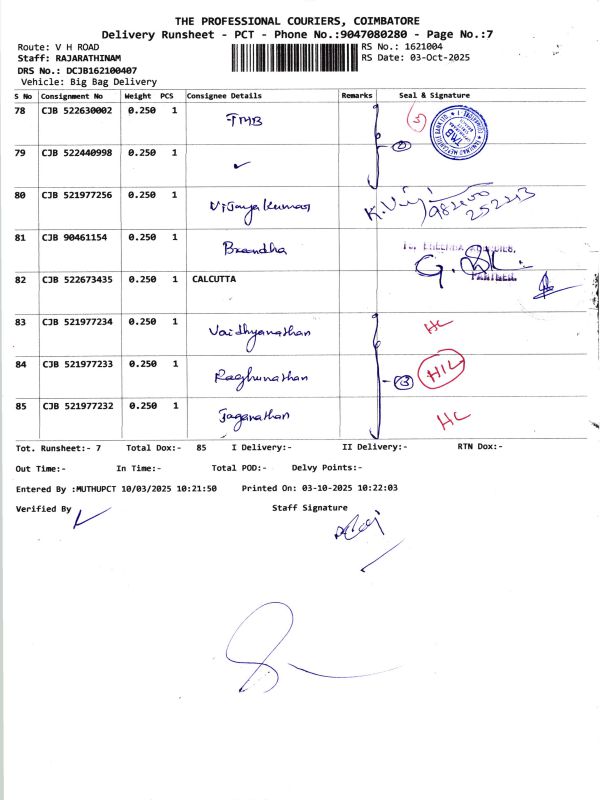 THE PROFESSIONAL COURIERS, COIMBATORE
Delivery Runsheet - PCT - Phone No.:9047080280 - Page No.:7
Route: V H ROAD RS No.: 1621004
Staff: RAJARATHINAM RS Date: 03-Oct-2025
DRS No.: DCJB162100407
Vehicle: Big Bag Delivery
S No Consignment No Weight PCS Consignee Details Remarks Seal & Signature
78 CJB 522630002 0.250 1 TMB 5
79 CJB 522440998 0.250 1 ✓ 2
80 CJB 521977256 0.250 1 Vijayakumar K. Viji 98400 25223
81 CJB 90461154 0.250 1 Brendha
PARTNER.
82 CJB 522673435 0.250 1 CALCUTTA
83 CJB 521977234 0.250 1 Vaidhyanathan HL
84 CJB 521977233 0.250 1 Raghunathan 3 HIL
85 CJB 521977232 0.250 1 Jaganathan HL
Tot. Runsheet:- 7 Total Dox:- 85 I Delivery:- II Delivery:- RTN Dox:-
Out Time:- In Time:- Total POD:- Delvy Points:-
Entered By :MUTHUPCT 10/03/2025 10:21:50 Printed On: 03-10-2025 10:22:03
Verified By Staff Signature